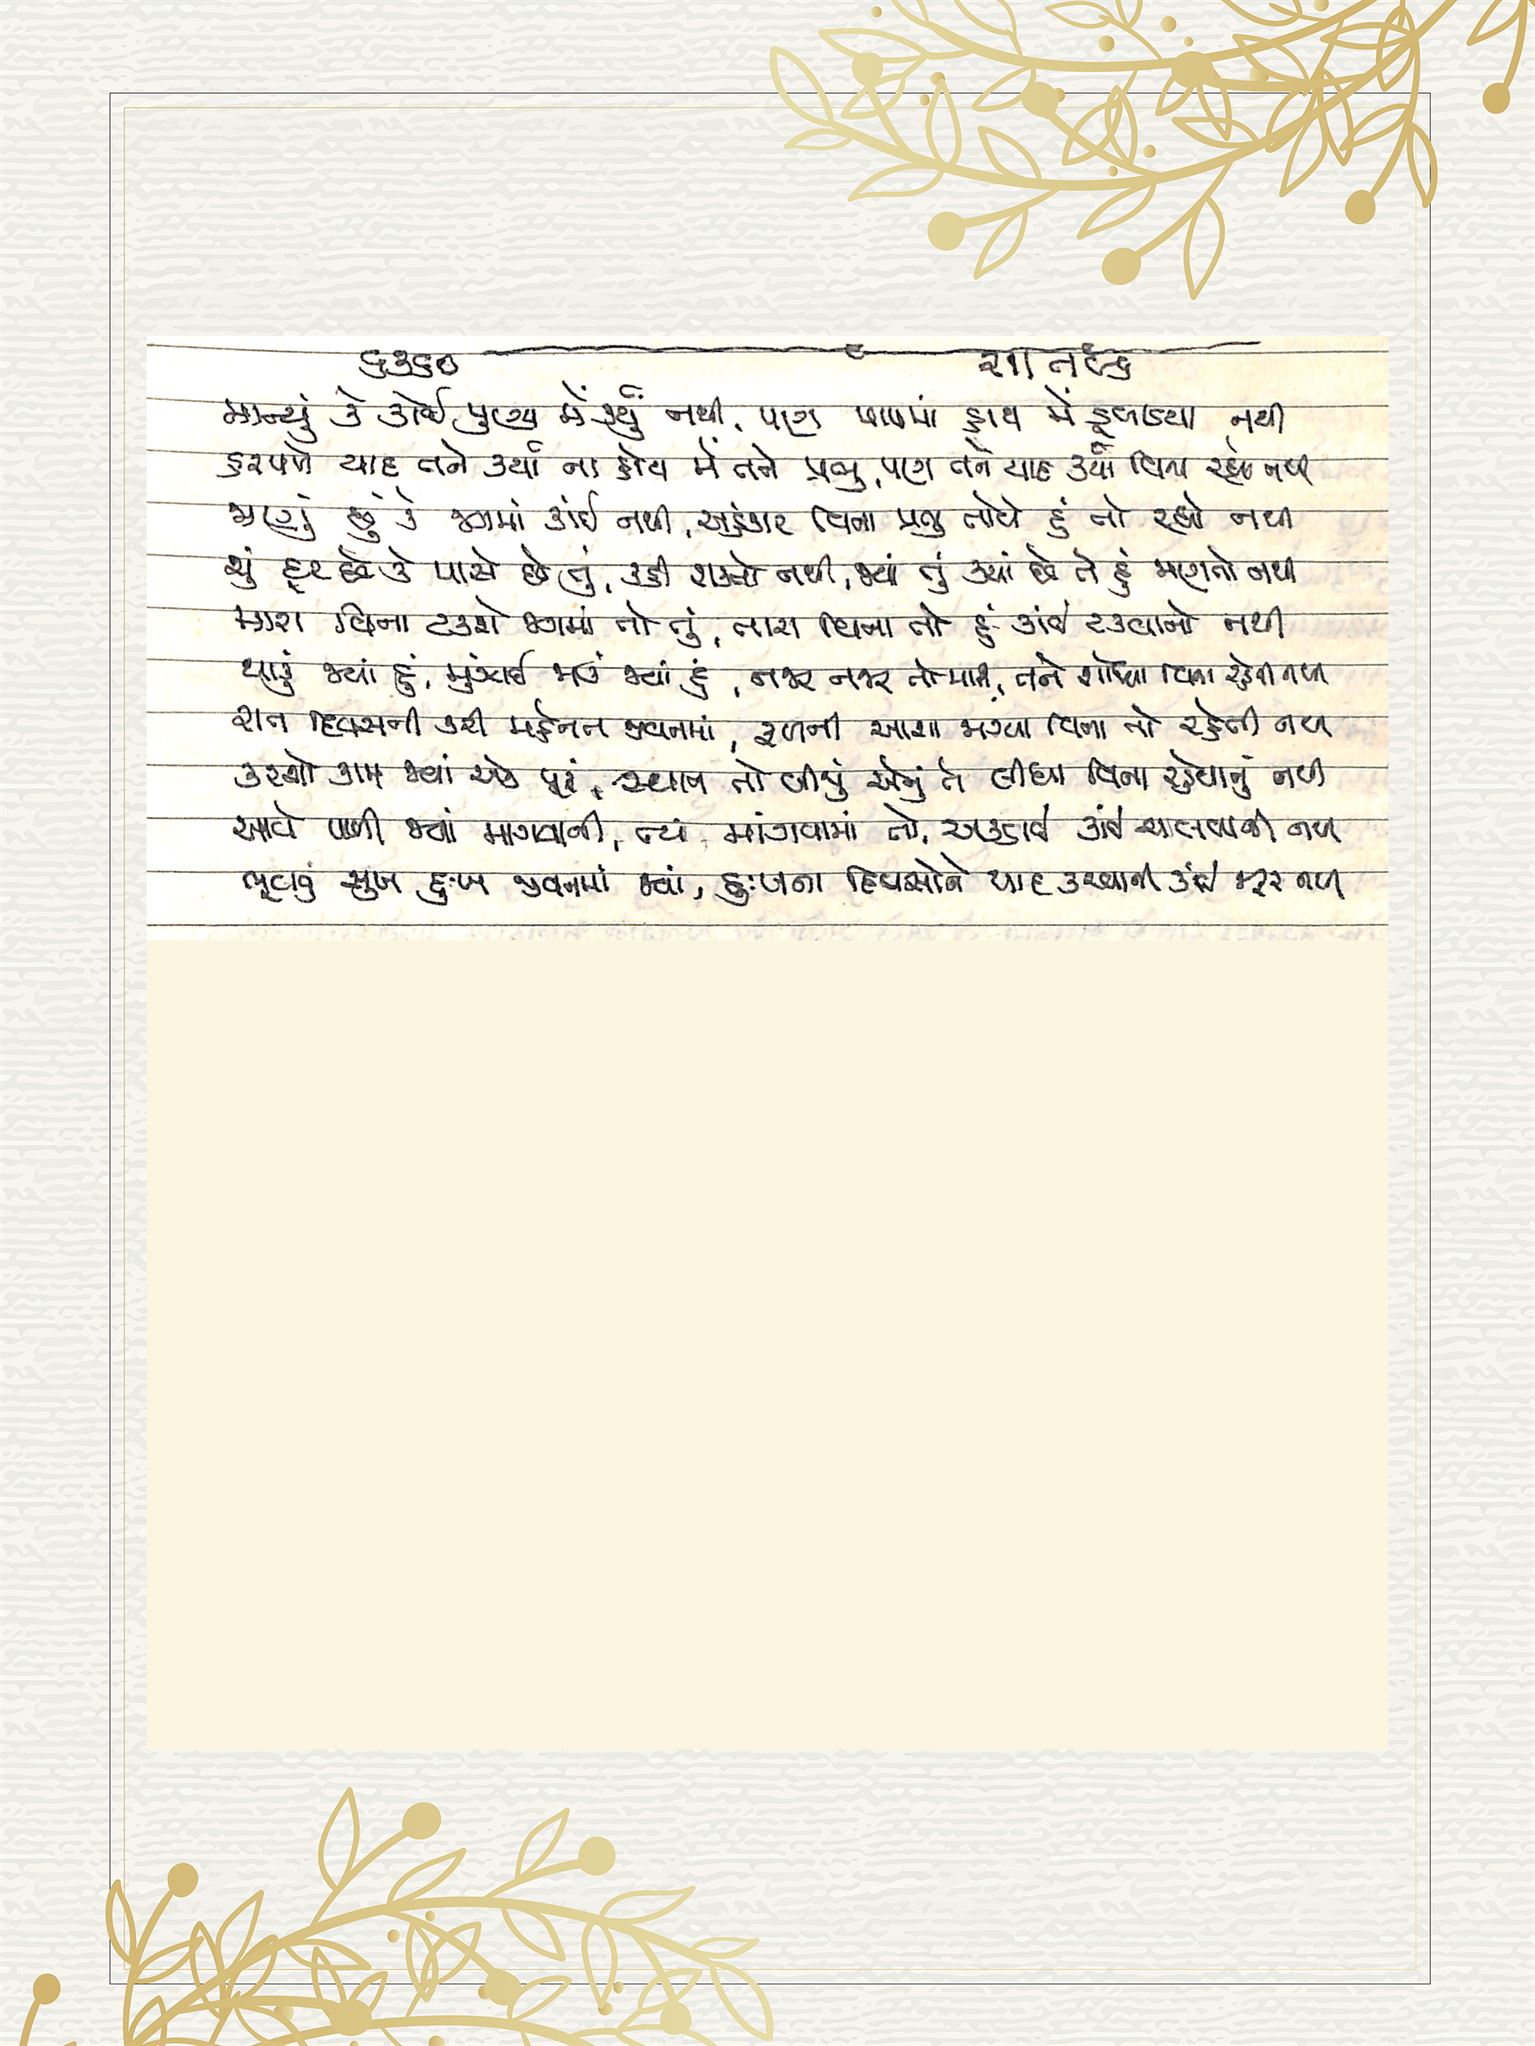 ૬૩૬૦
માન્યું કે કોઈ પુણ્ય મેં કર્યું નથી, પણ પાપમાં હાથ મેં ડૂબાડયા નથી
હરપળે યાદ તને કર્યા ના હોય મેં તને પ્રભુ, પણ તને યાદ કર્યા વિના રહ્યો નથી
જાણું છું કે જગમાં કાંઈ નથી, અહંકાર વિના પ્રભુ તોયે હું તો રહ્યો નથી
શું દૂર છે કે પાસે છે તું, કહી શક્તો નથી, જ્યાં તું ક્યાં છે તે હું જાણતો નથી
મારા વિના ટકશે જગમાં તો તું, તારા વિના તો હું કાંઈ ટકવાનો નથી
થાકું જ્યાં હું, મુંઝાઈ જાઉં જ્યાં હું, નજર નજર તો મારી, તને શોધ્યા વિના રહેતી નથી
રાત દિવસની કરી મહેનત જીવનમાં, ફળની આશા જાગ્યા વિના તો રહેતી નથી
કરશો કામ જ્યાં એક પૂરું, સ્થાન તો બીજું એનું તે લીધા વિના રહેવાનું નથી
આવે પાળી જ્યાં માગવાની, ત્યાં માંગવામાં તો, અચકાઈ કાંઈ ચાલવાનું નથી
ભૂલાવું સુખ દુઃખ જીવનમાં જ્યાં, દુઃખના દિવસોને યાદ કરવાની કાંઈ જરૂર નથી